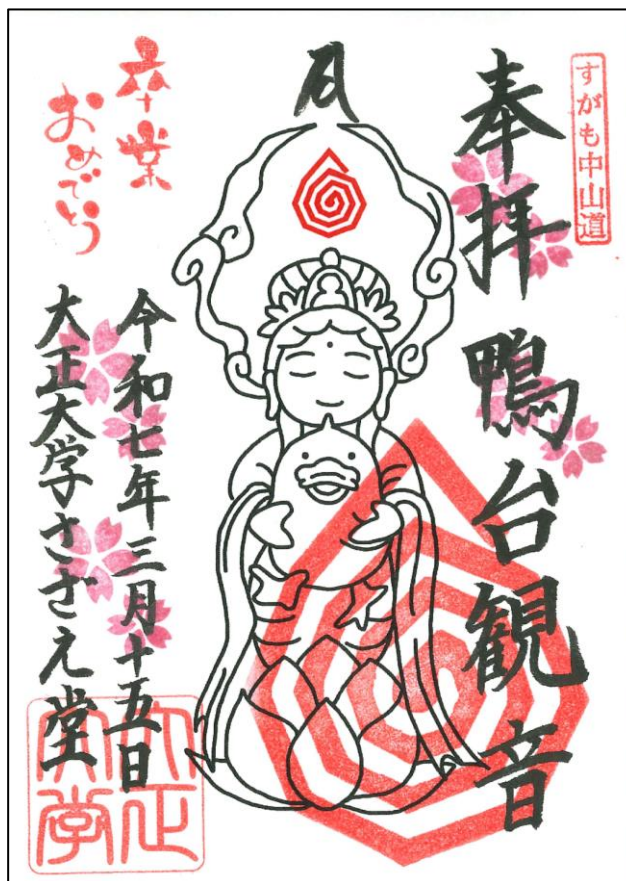 すがも中山道
奉拝 鴨台観音
卒業
おめでとう
令和七年三月十五日
大正大学さざえ堂
大正
大学